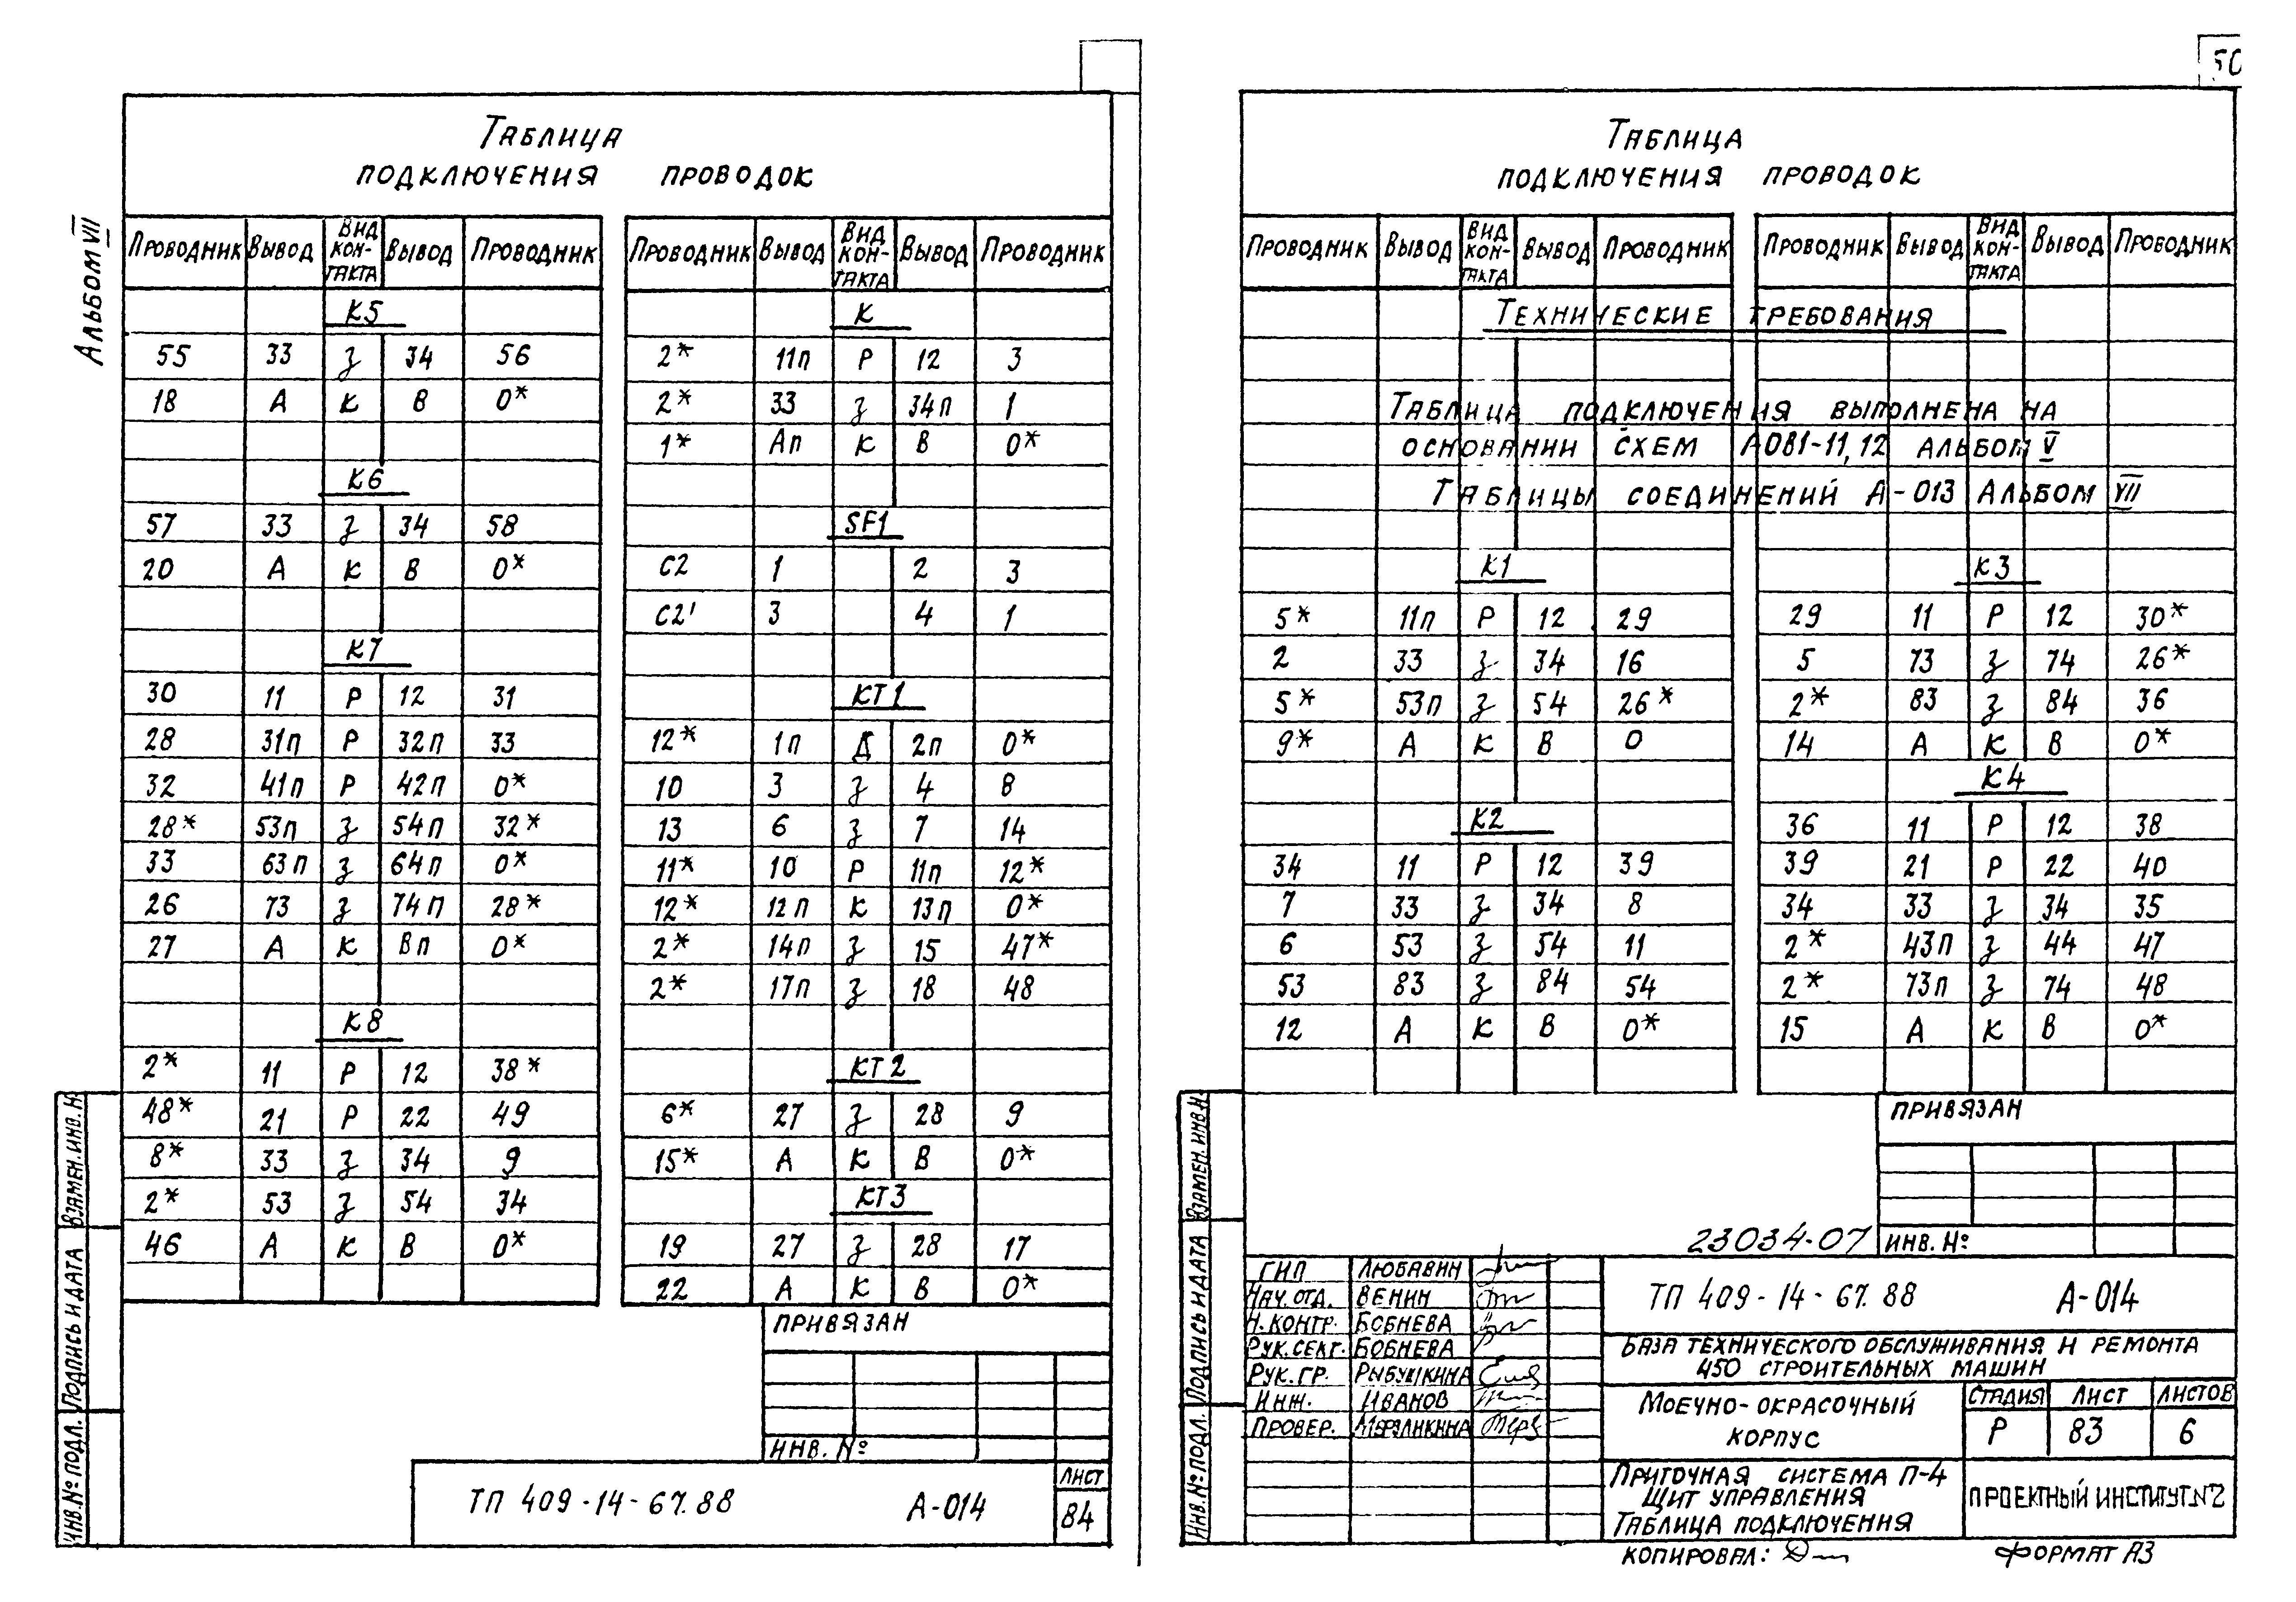 Альбом VII
Таблица
подключения проводок
Проводник Вывод Вид кон-такта Вывод Проводник
К5
55 33 З 34 56
18 А К В 0*
К6
57 33 З 34 58
20 А К В 0*
К7
30 11 Р 12 31
28 31п Р 32п 33
32 41п Р 42п 0*
28* 53п З 54п 32*
33 63п З 64п 0*
26 73 З 74п 28*
27 А К Вп 0*
К8
2* 11 Р 12 38*
48* 21 Р 22 49
8* 33 З 34 9
2* 53 З 54 34
46 А К В 0*
Проводник Вывод Вид кон-такта Вывод Проводник
К
2* 11п Р 12 3
2* 33 З 34п 1
1* Ап К В 0*
SF1
С2 1 2 3
С2' 3 4 1
КТ1
12* 1п Д 2п 0*
10 3 З 4 8
13 6 З 7 14
11* 10 Р 11п 12*
12* 12п К 13п 0*
2* 14п З 15 47*
2* 17п З 18 48
КТ2
6* 27 З 28 9
15* А К В 0*
КТ3
19 27 З 28 17
22 А К В 0*
Привязан
Инв. №
ТП 409-14-67.88 А-014
Лист
84
Инв.№ подл. Подпись и дата Взамен.инв.№
50
Таблица
подключения проводок
Проводник Вывод Вид кон-такта Вывод Проводник
Проводник Вывод Вид кон-такта Вывод Проводник
Технические требования
Таблица подключения выполнена на
основании схем А081-11,12 альбом V
Таблицы соединений А-013 Альбом VII
К1
5* 11п Р 12 29
2 33 З 34 16
5* 53п З 54 26*
9* А К В 0
К2
34 11 Р 12 39
7 33 З 34 8
6 53 З 54 11
53 83 З 84 54
12 А К В 0*
К3
29 11 Р 12 30*
5 73 З 74 26*
2* 83 З 84 36
14 А К В 0*
К4
36 11 Р 12 38
39 21 Р 22 40
34 33 З 34 35
2* 43п З 44 47
2* 73п З 74 48
15 А К В 0*
Привязан
Инв. №
23034-07
Инв.№ подл. Подпись и дата Взамен.инв.№
ГИП Любавин
Нач.отд. Венин
Н.контр. Бобнева
Рук.сект. Бобнева
Рук.гр. Рыбушкина
Инж. Иванов
Провер.
ТП 409-14-67.88 А-014
База технического обслуживания и ремонта
450 строительных машин
Моечно-окрасочный
корпус
Стадия Лист Листов
Р 83 6
Приточная система П-4
Щит управления
Таблица подключения
Проектный институт №2
Копировал:
Формат А3